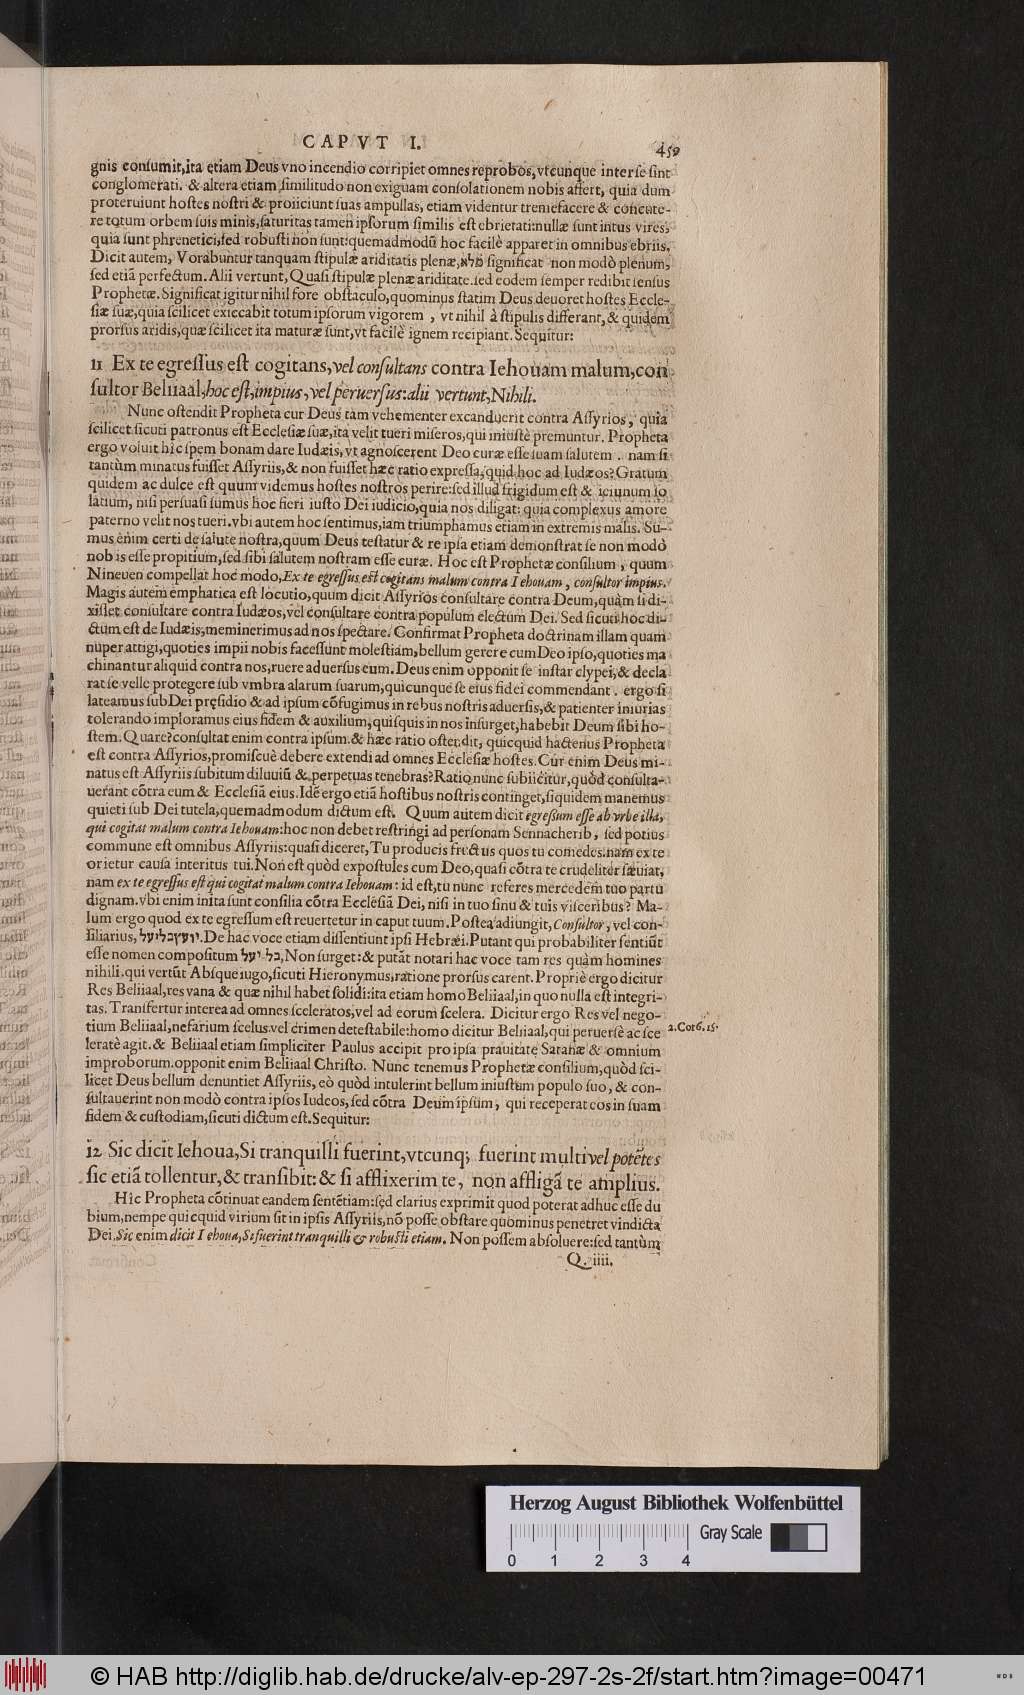 CAPVT I.
459
gnis conſumit,ita etiam Deus vno incendio corripiet omnes reprobos,vtcunque inter ſe ſint
conglomerati. & altera etiam ſimilitudo non exiguam conſolationem nobis affert, quia dum
proteruiunt hoſtes noſtri & proiiciunt ſuas ampullas, etiam videntur tremefacere & concute-
re totum orbem ſuis minis,ſaturitas tamen ipſorum ſimilis eſt ebrietati:nullæ ſunt intus vires,
quia ſunt phrenetici,ſed robuſti non ſunt:quemadmodū hoc facilè apparet in omnibus ebriis.
Dicit autem, Vorabuntur tanquam ſtipulæ ariditatis plenæ,מלא ſignificat non modò plenum,
ſed etiā perfectum. Alii vertunt, Quaſi ſtipulæ plenæ ariditate. ſed eodem ſemper redibit ſenſus
Prophetæ. Significat igitur nihil fore obſtaculo,quominus ſtatim Deus deuoret hoſtes Eccle-
ſiæ ſuæ,quia ſcilicet exiccabit totum ipſorum vigorem , vt nihil à ſtipulis differant,& quidem
prorſus aridis,quæ ſcilicet ita maturæ ſunt,vt facilè ignem recipiant. Sequitur:
11 Ex te egreſſus eſt cogitans,vel conſultans contra Iehouam malum,con
ſultor Beliiaal,hoc eſt,impius,vel peruerſus:alii vertunt,Nihili.
Nunc oſtendit Propheta cur Deus tam vehementer excanduerit contra Aſſyrios, quia
ſcilicet ſicuti patronus eſt Eccleſiæ ſuæ,ita velit tueri miſeros,qui iniuſtè premuntur. Propheta
ergo voluit hic ſpem bonam dare Iudæis, vt agnoſcerent Deo curæ eſſe ſuam ſalutem . nam ſi
tantùm minatus fuiſſet Aſſyriis,& non fuiſſet hæc ratio expreſſa,quid hoc ad Iudæos? Gratum
quidem ac dulce eſt quum videmus hoſtes noſtros perire:ſed illud frigidum eſt & ieiunum ſo
latium, niſi perſuaſi ſumus hoc fieri iuſto Dei iudicio,quia nos diligat: quia complexus amore
paterno velit nos tueri. vbi autem hoc ſentimus,iam triumphamus etiam in extremis malis. Su-
mus enim certi de ſalute noſtra,quum Deus teſtatur & re ipſa etiam demonſtrat ſe non modò
nobis eſſe propitium,ſed ſibi ſalutem noſtram eſſe curæ. Hoc eſt Prophetæ conſilium , quum
Nineuen compellat hoc modo,Ex te egreſſus eſt cogitans malum contra Iehouam, conſultor impius.
Magis autem emphatica eſt locutio,quum dicit Aſſyrios conſultare contra Deum,quàm ſi di-
xiſſet conſultare contra Iudæos,vel conſultare contra populum electum Dei. Sed ſicuti hoc di-
ctum eſt de Iudæis,meminerimus ad nos ſpectare. Confirmat Propheta doctrinam illam quam
nuper attigi,quoties impii nobis faceſſunt moleſtiam,bellum gerere cum Deo ipſo,quoties ma
chinantur aliquid contra nos,ruere aduerſus eum. Deus enim opponit ſe inſtar clypei,& decla
rat ſe velle protegere ſub vmbra alarum ſuarum,quicunque ſe eius fidei commendant . ergo ſi
lateamus ſub Dei pręſidio & ad ipſum cōfugimus in rebus noſtris aduerſis,& patienter iniurias
tolerando imploramus eius fidem & auxilium,quiſquis in nos inſurget,habebit Deum ſibi ho-
ſtem. Quare?conſultat enim contra ipſum.& hæc ratio oſtendit, quicquid hactenus Propheta
eſt contra Aſſyrios,promiſcuè debere extendi ad omnes Eccleſiæ hoſtes. Cur enim Deus mi-
natus eſt Aſſyriis ſubitum diluuiū & perpetuas tenebras? Ratio nunc ſubiicitur,quòd conſulta-
uerant cōtra eum & Eccleſiā eius. Idē ergo etiā hoſtibus noſtris continget,ſiquidem manemus
quieti ſub Dei tutela,quemadmodum dictum eſt. Quum autem dicit egreſſum eſſe ab vrbe illa,
qui cogitat malum contra Iehouam:hoc non debet reſtringi ad perſonam Sennacherib, ſed potius
commune eſt omnibus Aſſyriis:quaſi diceret,Tu producis fructus quos tu comedes.nam ex te
orietur cauſa interitus tui. Non eſt quòd expoſtules cum Deo,quaſi cōtra te crudeliter ſæuiat,
nam ex te egreſſus eſt qui cogitat malum contra Iehouam: id eſt,tu nunc referes mercedem tuo partu
dignam. vbi enim inita ſunt conſilia cōtra Eccleſiā Dei, niſi in tuo ſinu & tuis viſceribus? Ma-
lum ergo quod ex te egreſſum eſt reuertetur in caput tuum. Poſtea adiungit, Conſultor, vel con-
ſiliarius, יועץ בליעל. De hac voce etiam diſſentiunt ipſi Hebræi. Putant qui probabiliter ſentiūt
eſſe nomen compoſitum בל-יעל,Non ſurget:& putāt notari hac voce tam res quàm homines
nihili. qui vertūt Abſque iugo,ſicuti Hieronymus,ratione prorſus carent. Propriè ergo dicitur
Res Beliiaal,res vana & quæ nihil habet ſolidi:ita etiam homo Beliiaal,in quo nulla eſt integri-
tas. Transfertur interea ad omnes ſceleratos,vel ad eorum ſcelera. Dicitur ergo Res vel nego-
tium Beliiaal,nefarium ſcelus.vel crimen deteſtabile:homo dicitur Beliiaal,qui peruerſè ac ſce
2.Cor.6.15.
leratè agit.& Beliiaal etiam ſimpliciter Paulus accipit pro ipſa prauitate Satanæ & omnium
improborum.opponit enim Beliiaal Chriſto. Nunc tenemus Prophetæ conſilium,quòd ſci-
licet Deus bellum denuntiet Aſſyriis, eò quòd intulerint bellum iniuſtum populo ſuo, & con-
ſultauerint non modò contra ipſos Iudeos,ſed cōtra Deum ipſum, qui receperat eos in ſuam
fidem & cuſtodiam,ſicuti dictum eſt. Sequitur:
12 Sic dicit Iehoua,Si tranquilli fuerint,vtcunq; fuerint multi vel potētes
ſic etiā tollentur,& tranſibit:& ſi afflixerim te, non affligā te amplius.
Hic Propheta cōtinuat eandem ſentētiam:ſed clarius exprimit quod poterat adhuc eſſe du
bium,nempe quicquid virium ſit in ipſis Aſſyriis,nō poſſe obſtare quominus penetret vindicta
Dei. Sic enim dicit Iehoua,Si fuerint tranquilli & robuſti etiam. Non poſſem abſoluere:ſed tantùm
Q. iiii.
Herzog August Bibliothek Wolfenbüttel
Gray Scale
0 1 2 3 4
© HAB http://diglib.hab.de/drucke/alv-ep-297-2s-2f/start.htm?image=00471